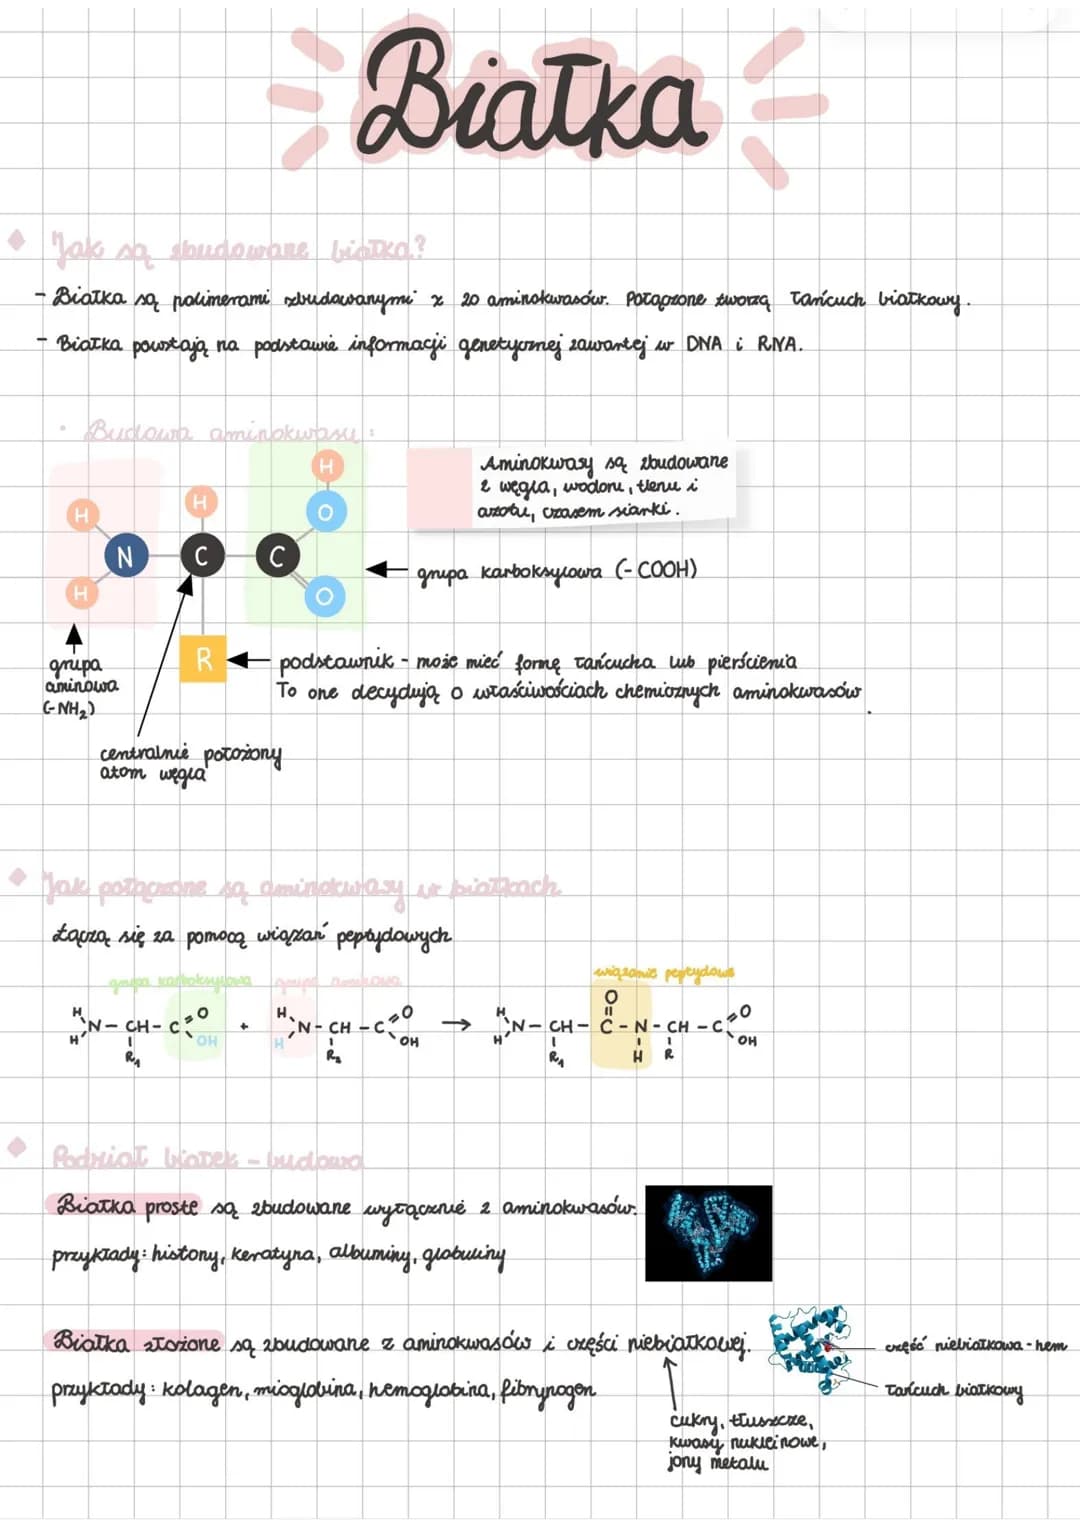 Białka
Jak są zbudowane białka?
- Białka są polimerami zbudowanymi z 20 aminokwasów. Połączone tworzą łańcuch białkowy.
- Białka powstają na podstawie informacji genetycznej zawartej w DNA i RNA.
• Budowa aminokwasu:
Aminokwasy są zbudowane
z węgla, wodoru, tlenu i
azotu, czasem siarki.
H
H
H
O
N
C
C
H
O
grupa karboksylowa (-COOH)
R
podstawnik - może mieć formę łańcucha lub pierścienia
To one decydują o właściwościach chemicznych aminokwasów.
grupa
aminowa
(-NH₂)
centralnie położony
atom węgla
Jak połączone są aminokwasy w białkach
Łączą się za pomocą wiązań peptydowych
grupa karboksylowa grupa aminowa wiązanie peptydowe
H H O
H N - CH - C = O OH + H N - CH - C = O OH → H N - CH - C - N - CH - C = O OH
R₁ R₂ R₁ H R
Podział białek - budowa
Białka proste są zbudowane wyłącznie z aminokwasów.
przykłady: histony, keratyna, albuminy, globuliny
Białka złożone są zbudowane z aminokwasów i części niebiałkowej.
część niebiałkowa - hem
przykłady: kolagen, mioglobina, hemoglobina, fibrynogen
łańcuch białkowy
cukry, tłuszcze,
kwasy nukleinowe,
jony metalu